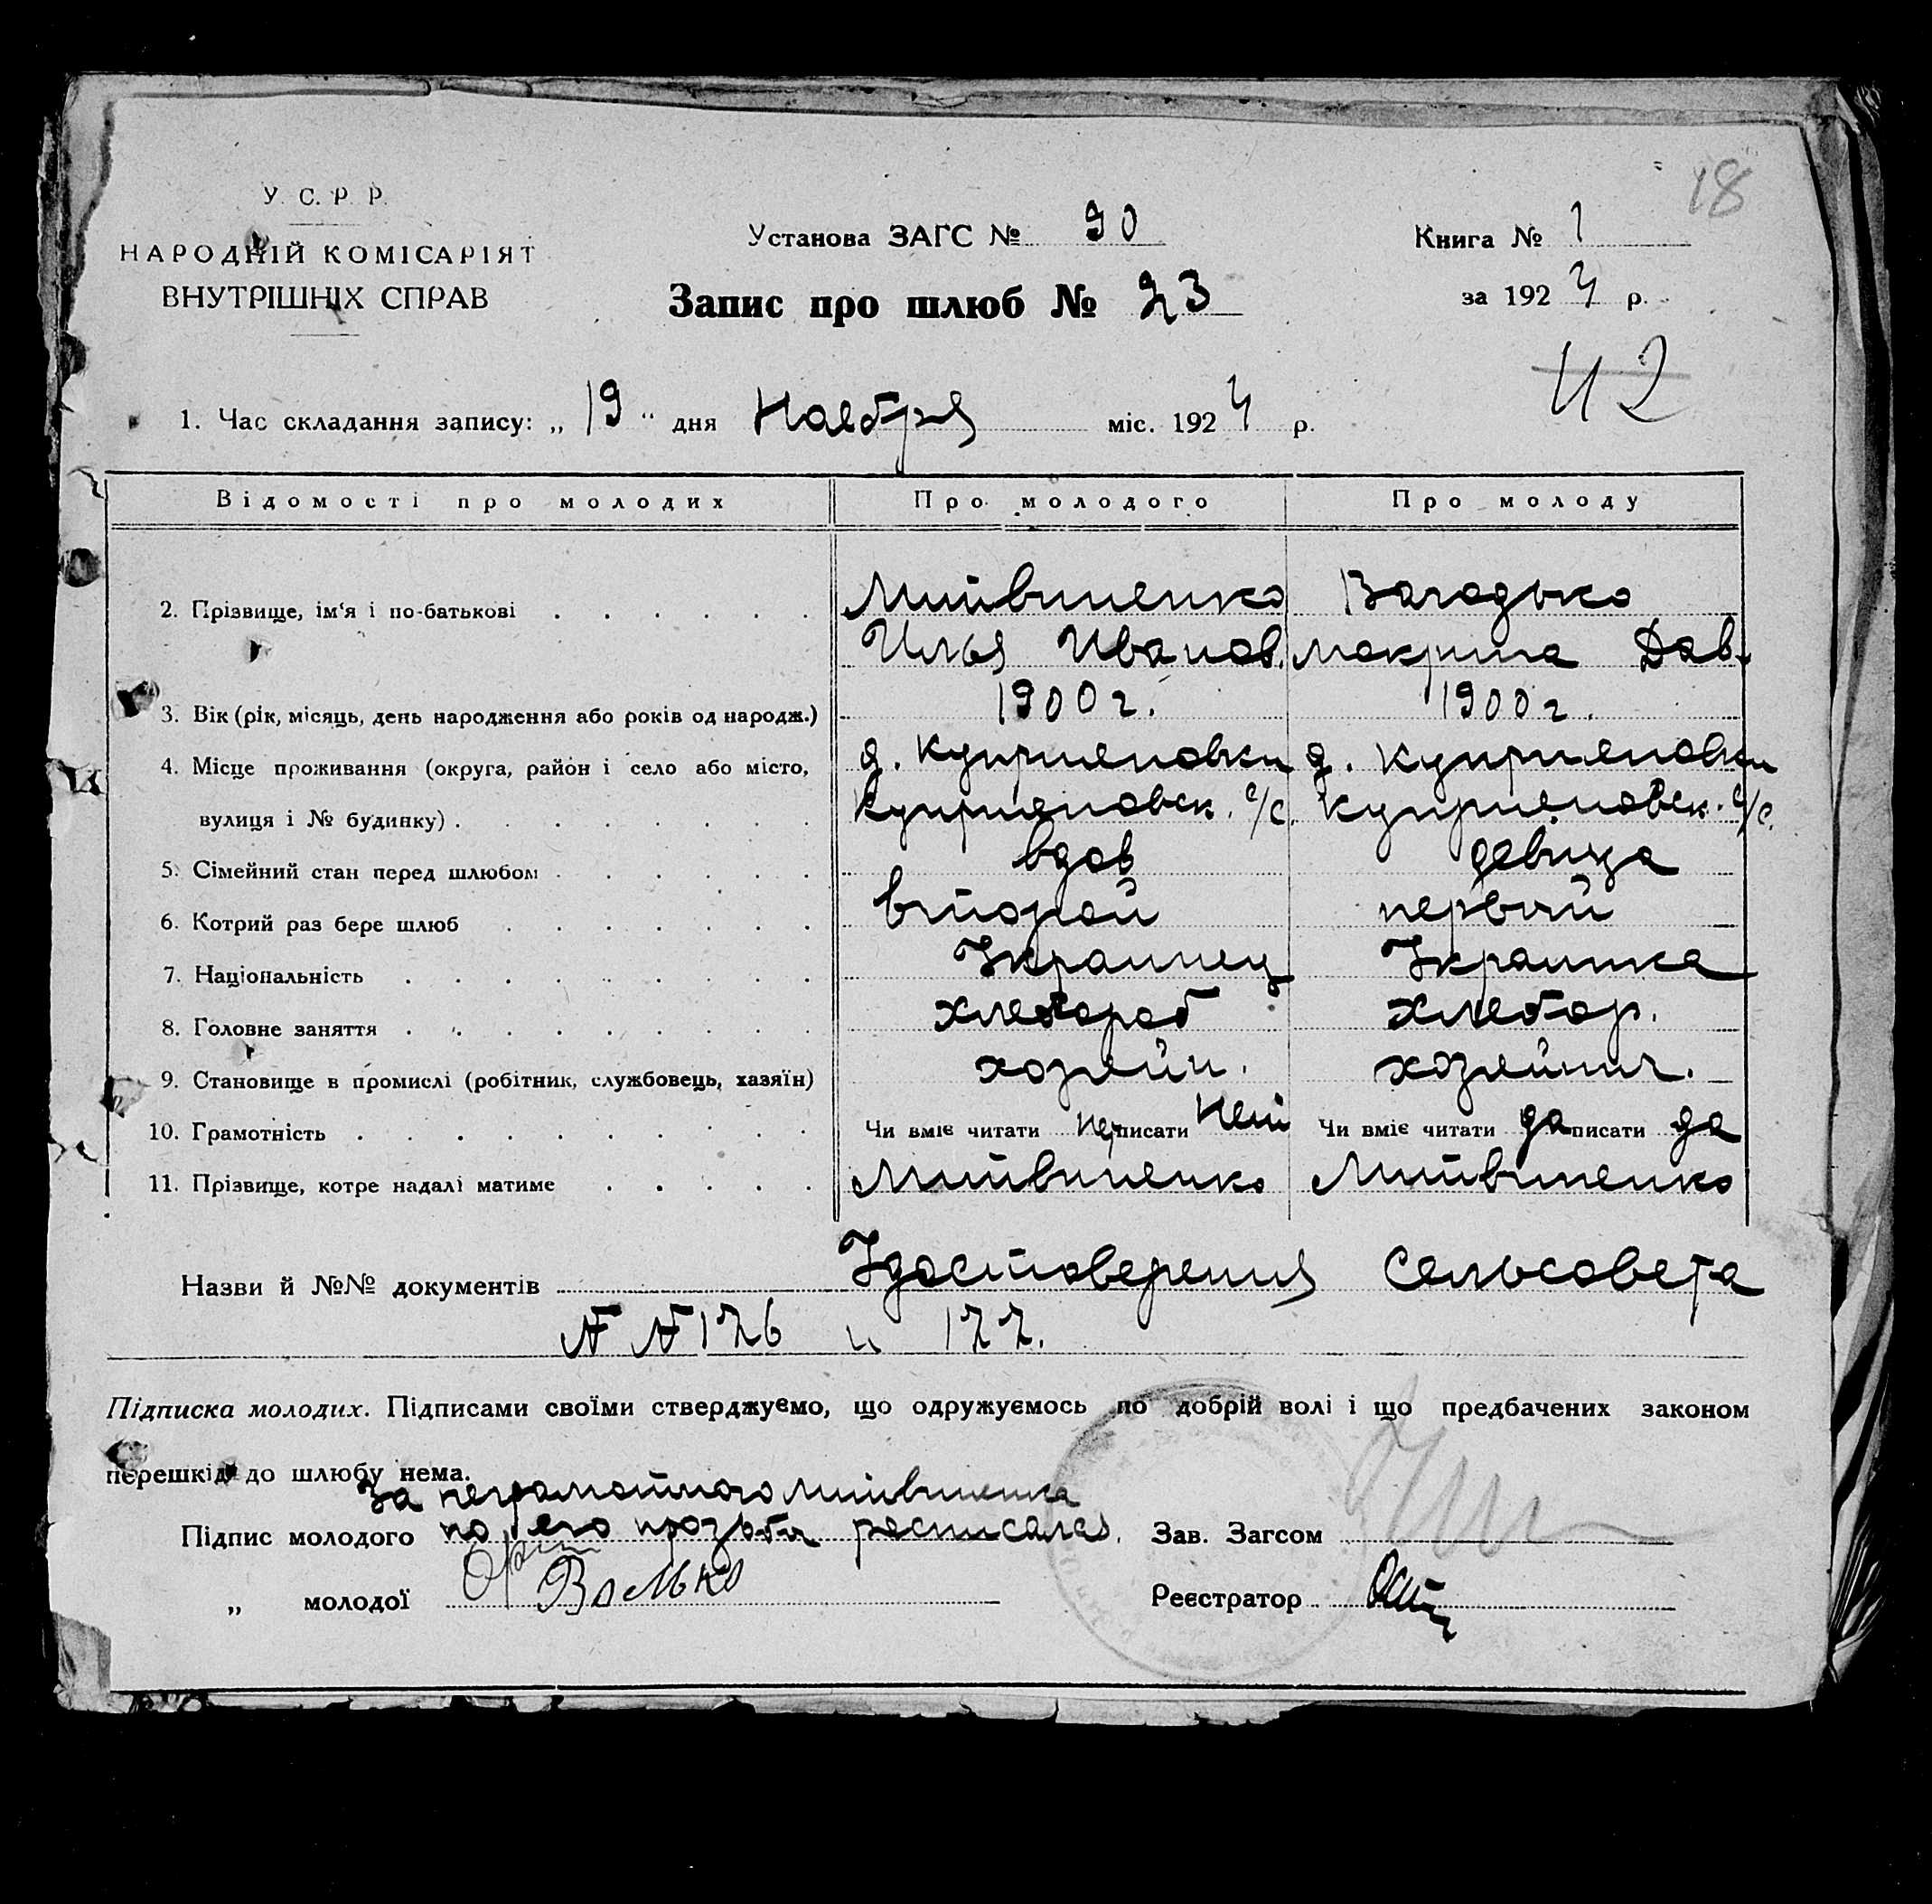 18
У. С. Р. Р.
НАРОДНІЙ КОМІСАРІЯТ
ВНУТРІШНІХ СПРАВ
Установа ЗАГС № 90
Книга № 1
Запис про шлюб № 23
за 1924 р.
42
1. Час складання запису: „ 19 “ дня Ноября міс. 1924 р.
Відомості про молодих Про молодого Про молоду
2. Прізвище, ім‘я і по-батькові Литвиненко
Илья Иванов. Макрина Дав.
3. Вік (рік, місяць, день народження або років од народж.) 1900 г. 1900 г.
4. Місце проживання (округа, район і село або місто, д. Куприяновки д. Куприяновки
вулиця і № будинку) Куприяновск. с/с. Куприяновск. с/с.
5. Сімейний стан перед шлюбом вдов девица
6. Котрий раз бере шлюб второй первый
7. Національність Украинец Украинка
8. Головне заняття хлебороб хлебор.
9. Становище в промислі (робітник, службовець, хазяїн) хозяйн. хозяйнич.
10. Грамотність Чи вміє читати нет писати нет Чи вміє читати да писати да
11. Прізвище, котре надалі матиме Литвиненко Литвиненко
Назви й №№ документів Удостоверения Сельсовета
№ № 176 и 177.
Підписка молодих. Підписами своїми стверджуємо, що одружуємось по добрій волі і що предбачених законом
перешкід до шлюбу нема.
За неграмотного Литвиненка
Підпис молодого по его прозьби росписался. Зав. Загсом
„ молодої Реєстратор